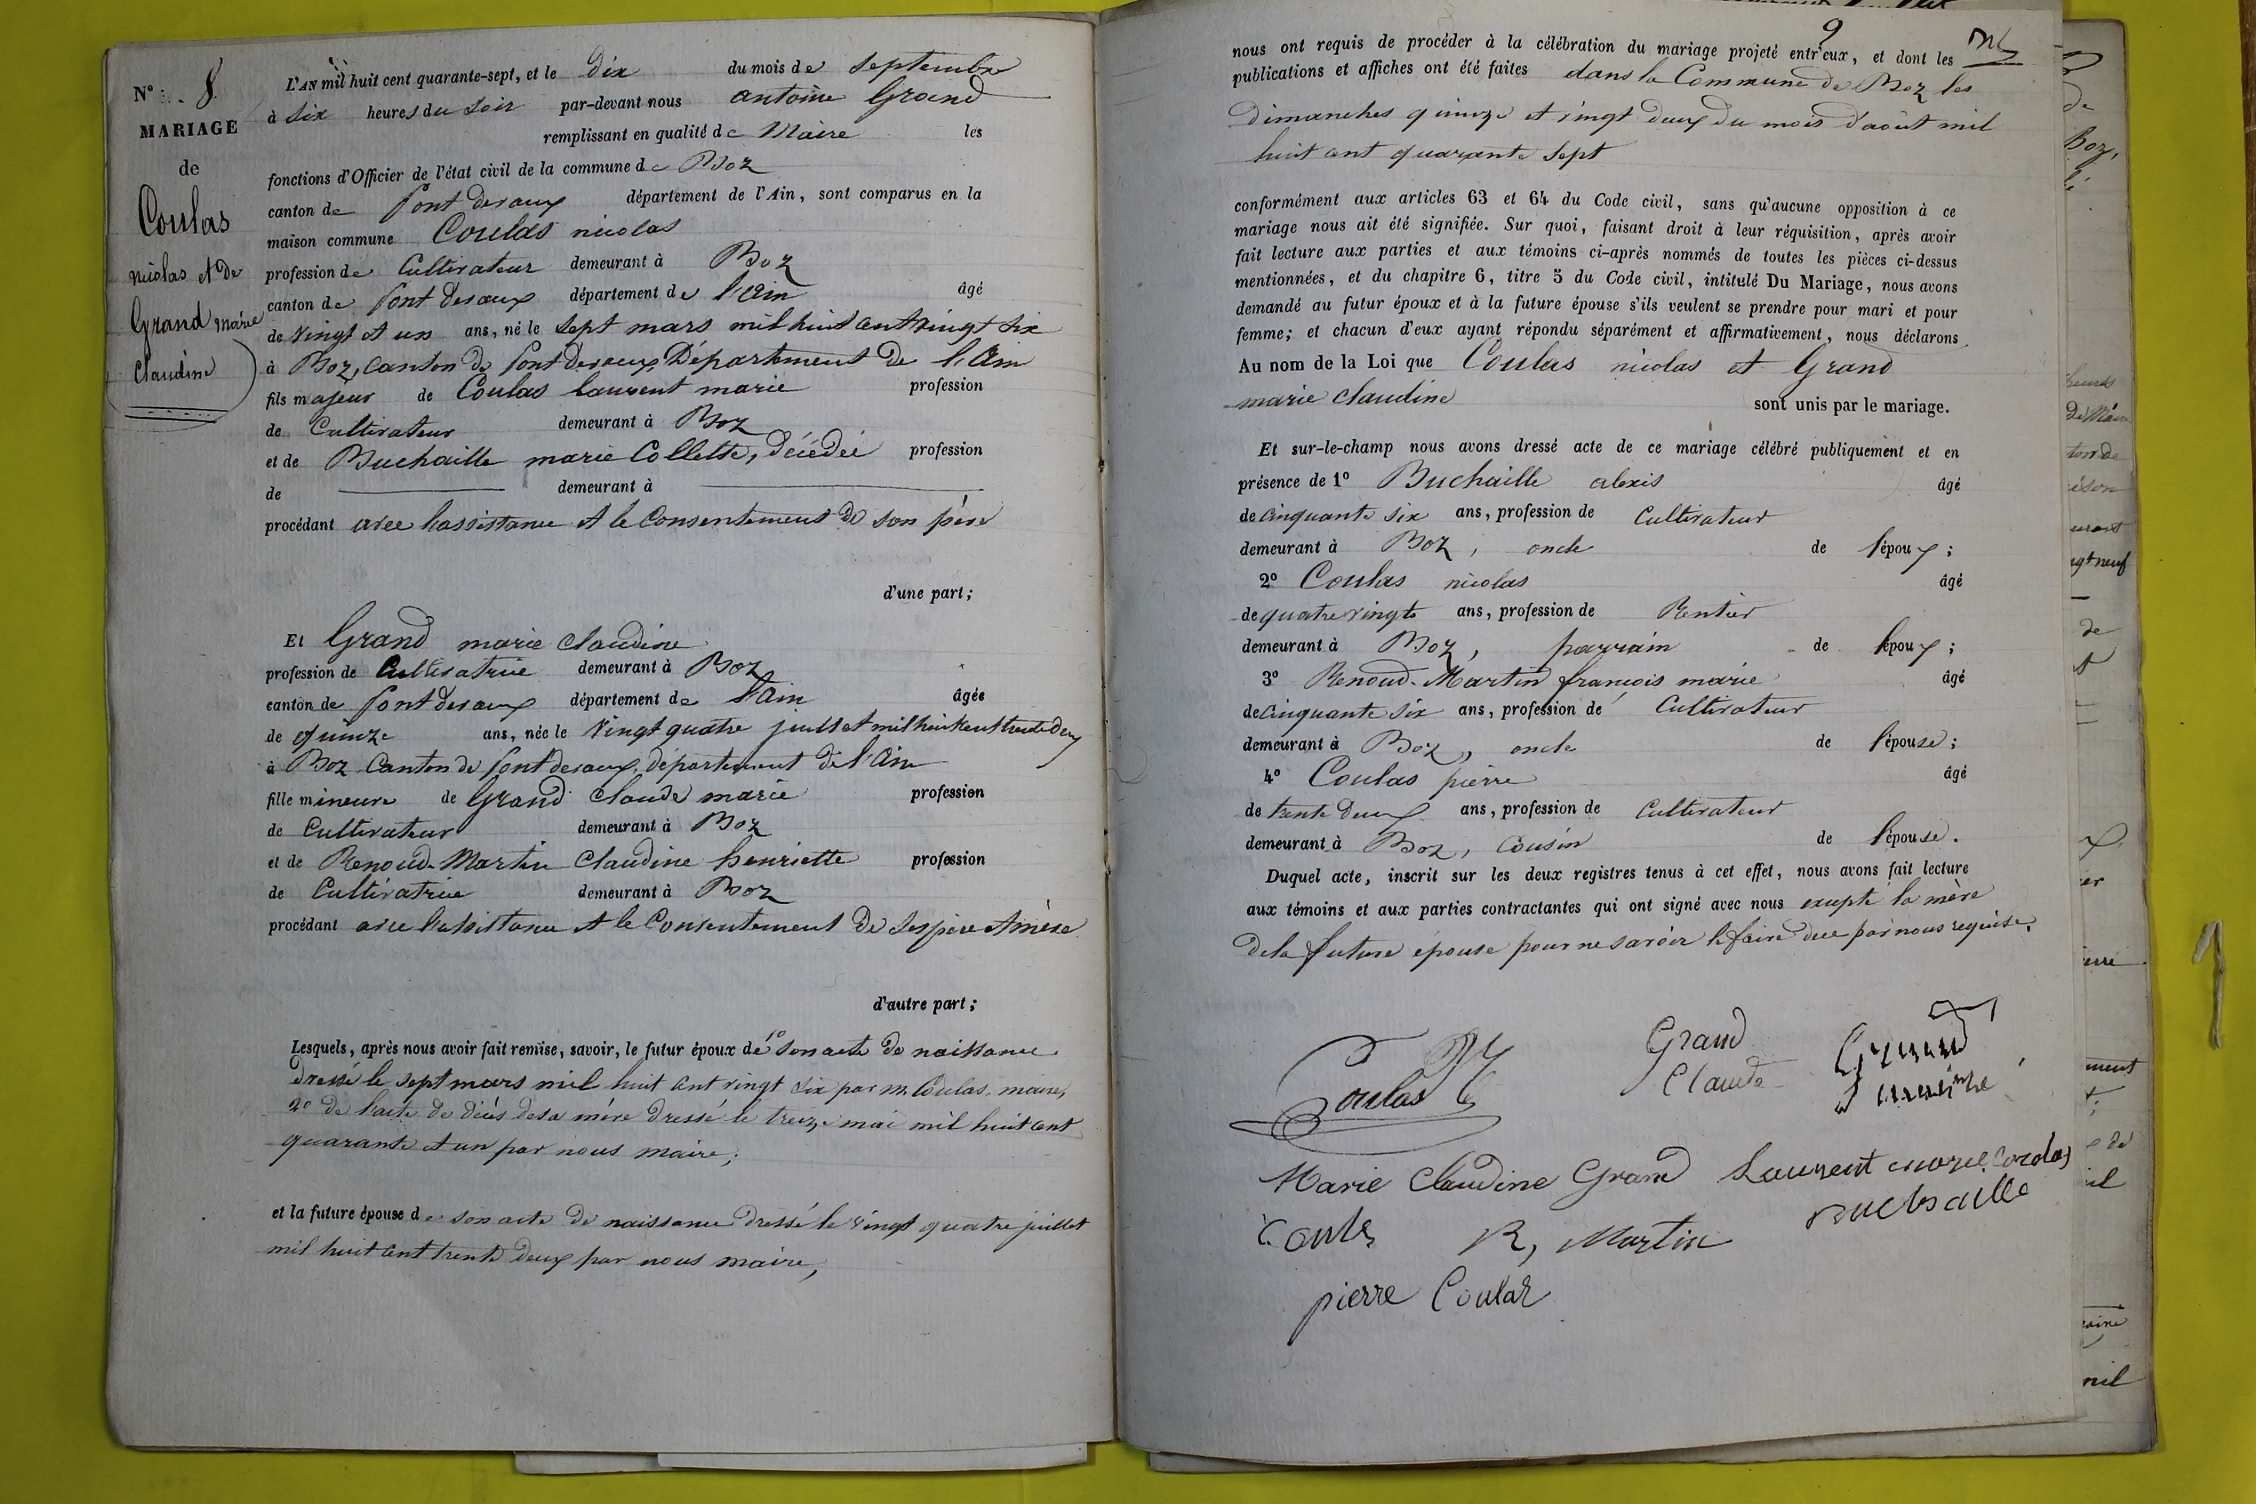 N° 8.
MARIAGE
de
Coulas
nicolas et de
Grand marie
Claudine
L'AN mil huit cent quarante-sept, et le dix du mois de septembre
à six heures du soir par-devant nous antoine Grand
remplissant en qualité de Maire les
fonctions d'Officier de l'état civil de la commune de Boz
canton de Pont devaux département de l'Ain, sont comparus en la
maison commune Coulas nicolas
profession de Cultivateur demeurant à Boz
canton de Pont devaux département de l'Ain âgé
de vingt et un ans, né le sept mars mil huit cent vingt six
à Boz, canton de Pont devaux, Département de l'Ain
fils majeur de Coulas laurent marie profession
de Cultivateur demeurant à Boz
et de Buchaille marie Collette, décédée profession
de demeurant à
procédant avec l'assistance et le Consentement de son père
d'une part;
Et Grand marie Claudine
profession de Cultivatrice demeurant à Boz
canton de Pont devaux département de l'Ain âgée
de quinze ans, née le vingt quatre juillet mil huit cent trente deux
à Boz Canton de Pont devaux, département de l'Ain
fille mineure de Grand Claude marie profession
de Cultivateur demeurant à Boz
et de Renoud-Martin Claudine henriette profession
de Cultivatrice demeurant à Boz
procédant avec l'assistance et le Consentement de ses père et mère
d'autre part;
Lesquels, après nous avoir fait remise, savoir, le futur époux de 1° son acte de naissance
dressé le sept mars mil huit cent vingt six par m. Coulas, maire,
2° de l'acte de décès de sa mère dressé le treize mai mil huit cent
quarante et un par nous maire;
et la future épouse de son acte de naissance dressé le vingt quatre juillet
mil huit cent trente deux par nous maire,
9
nous ont requis de procéder à la célébration du mariage projeté entr'eux, et dont les
publications et affiches ont été faites dans la Commune de Boz les
dimanches quinze et vingt deux du mois d'août mil
huit cent quarante sept
conformément aux articles 63 et 64 du Code civil, sans qu'aucune opposition à ce
mariage nous ait été signifiée. Sur quoi, faisant droit à leur réquisition, après avoir
fait lecture aux parties et aux témoins ci-après nommés de toutes les pièces ci-dessus
mentionnées, et du chapitre 6, titre 5 du Code civil, intitulé Du Mariage, nous avons
demandé au futur époux et à la future épouse s'ils veulent se prendre pour mari et pour
femme; et chacun d'eux ayant répondu séparément et affirmativement, nous déclarons
Au nom de la Loi que Coulas nicolas et Grand
marie Claudine sont unis par le mariage.
Et sur-le-champ nous avons dressé acte de ce mariage célébré publiquement et en
présence de 1° Buchaille alexis âgé
de cinquante six ans, profession de Cultivateur
demeurant à Boz, oncle de l'époux;
2° Coulas nicolas âgé
de quatre vingts ans, profession de Rentier
demeurant à Boz, parrain de l'époux;
3° Renoud-Martin françois marie âgé
de cinquante six ans, profession de Cultivateur
demeurant à Boz, oncle de l'épouse;
4° Coulas pierre âgé
de trente deux ans, profession de Cultivateur
demeurant à Boz, Cousin de l'épouse.
Duquel acte, inscrit sur les deux registres tenus à cet effet, nous avons fait lecture
aux témoins et aux parties contractantes qui ont signé avec nous excepté la mère
de la future épouse pour ne savoir le faire due par nous requise.
Coulas Grand Grand
Claude maire
Marie Claudine Grand Laurent marie Coulas
R, Martin Buchaille
pierre Coulas